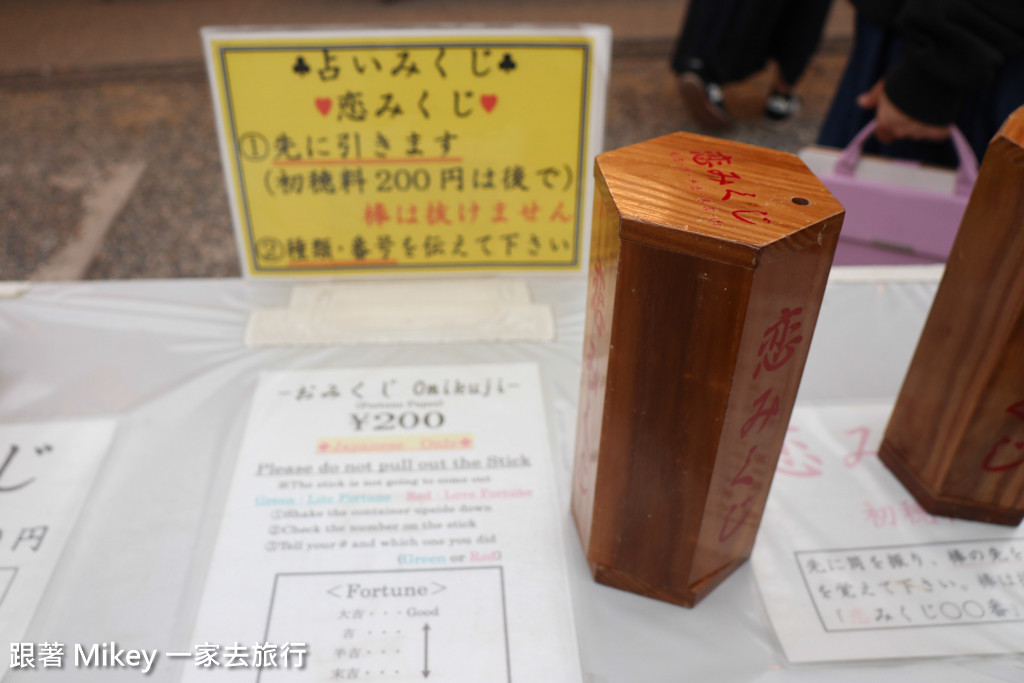 ♣占いみくじ♣
♥恋みくじ♥
①先に引きます
(初穂料200円は後で)
棒は抜けません
②種類・番号を伝えて下さい
-おみくじ Omikuji-
(Fortune Paper)
¥200
Japanese Only
Please do not pull out the Stick
※The stick is not going to come out
Green : Life Fortune Red : Love Fortune
①Shake the container upside down
②Check the number on the stick
③Tell your # and which one you did
(Green or Red)
<Fortune>
大吉・・・Good
吉・・・
半吉・・・
末吉・・・
恋みくじ
恋みくじ
じ
0円
初穂
先に筒を振り、棒の先を
を覚えて下さい。棒は
「恋みくじ〇〇番
跟著 Mikey 一家去旅行